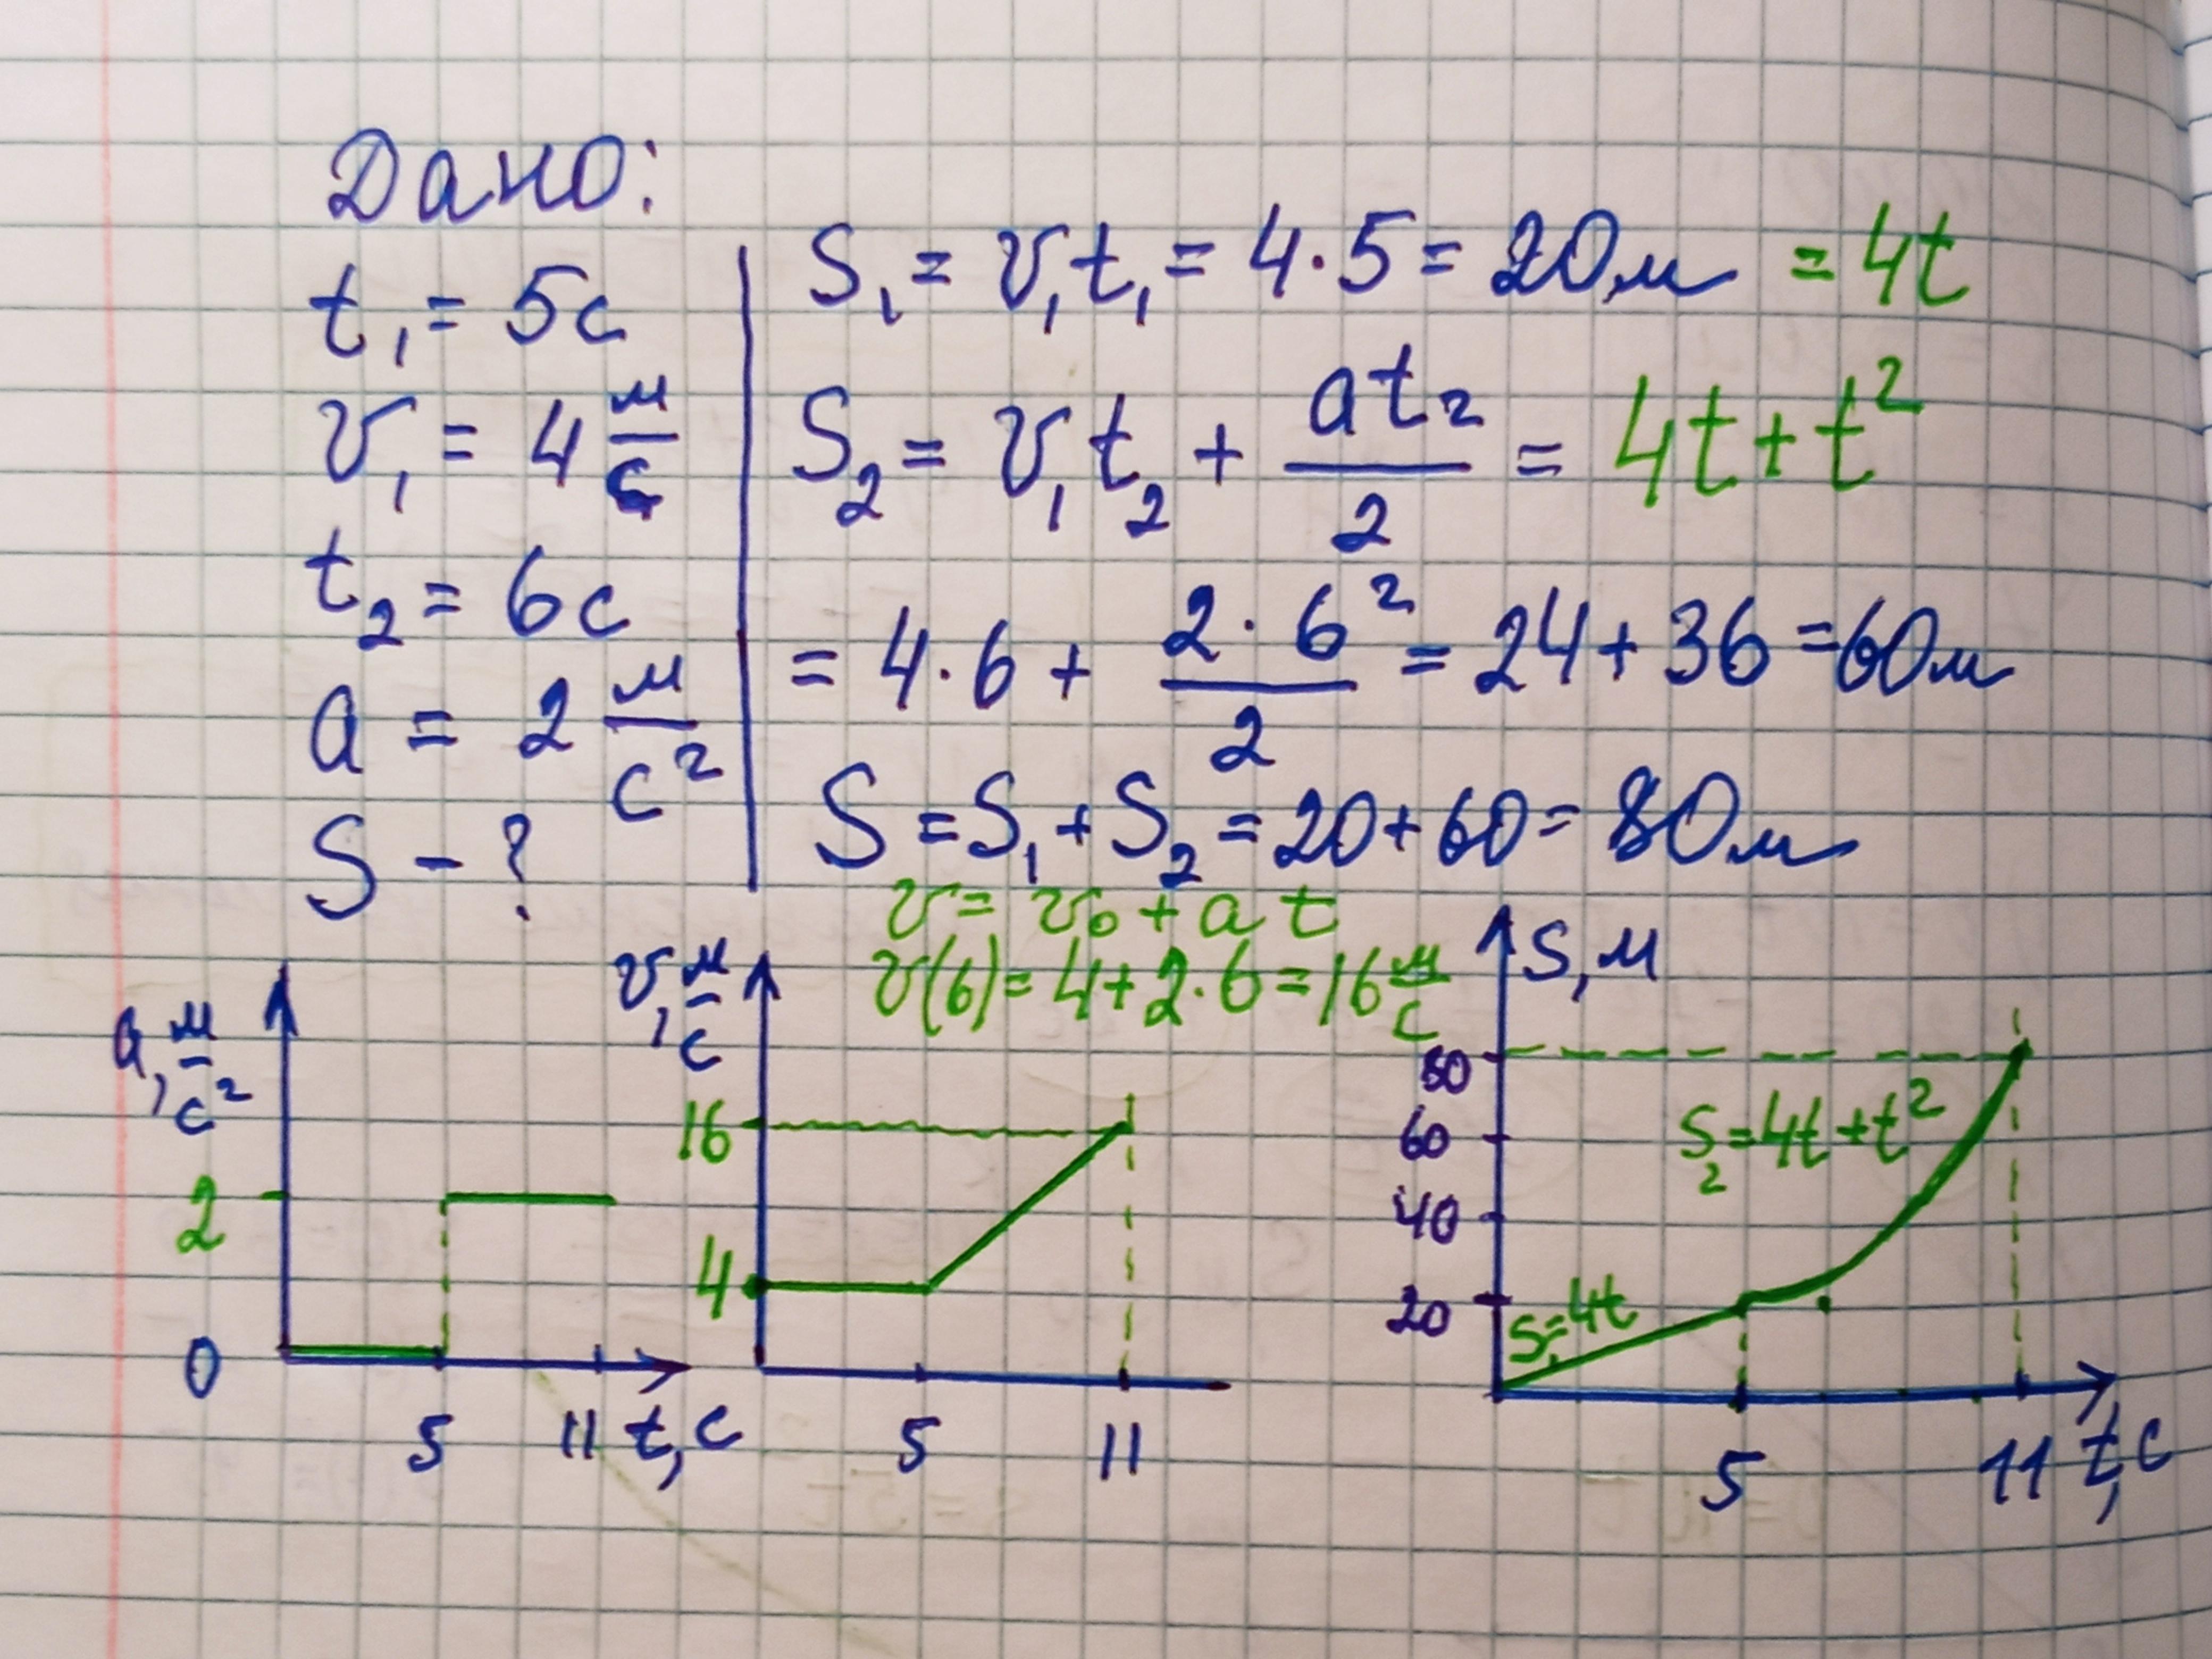 Дано:
t₁ = 5с
v₁ = 4 м/с
t₂ = 6с
a = 2 м/с²
S - ?
S₁ = v₁t₁ = 4·5 = 20м = 4t
S₂ = v₁t₂ + at₂/2 = 4t+t²
= 4·6 + 2·6²/2 = 24+36 = 60м
S = S₁+S₂ = 20+60 = 80м
v = v₀ + at
v(6) = 4+2·6 = 16 м/с
a, м/с²
2
0
5
11
t,с
v, м/с
16
4
5
11
S,м
80
60
40
20
S₁=4t
S₂=4t+t²
5
11
t,с